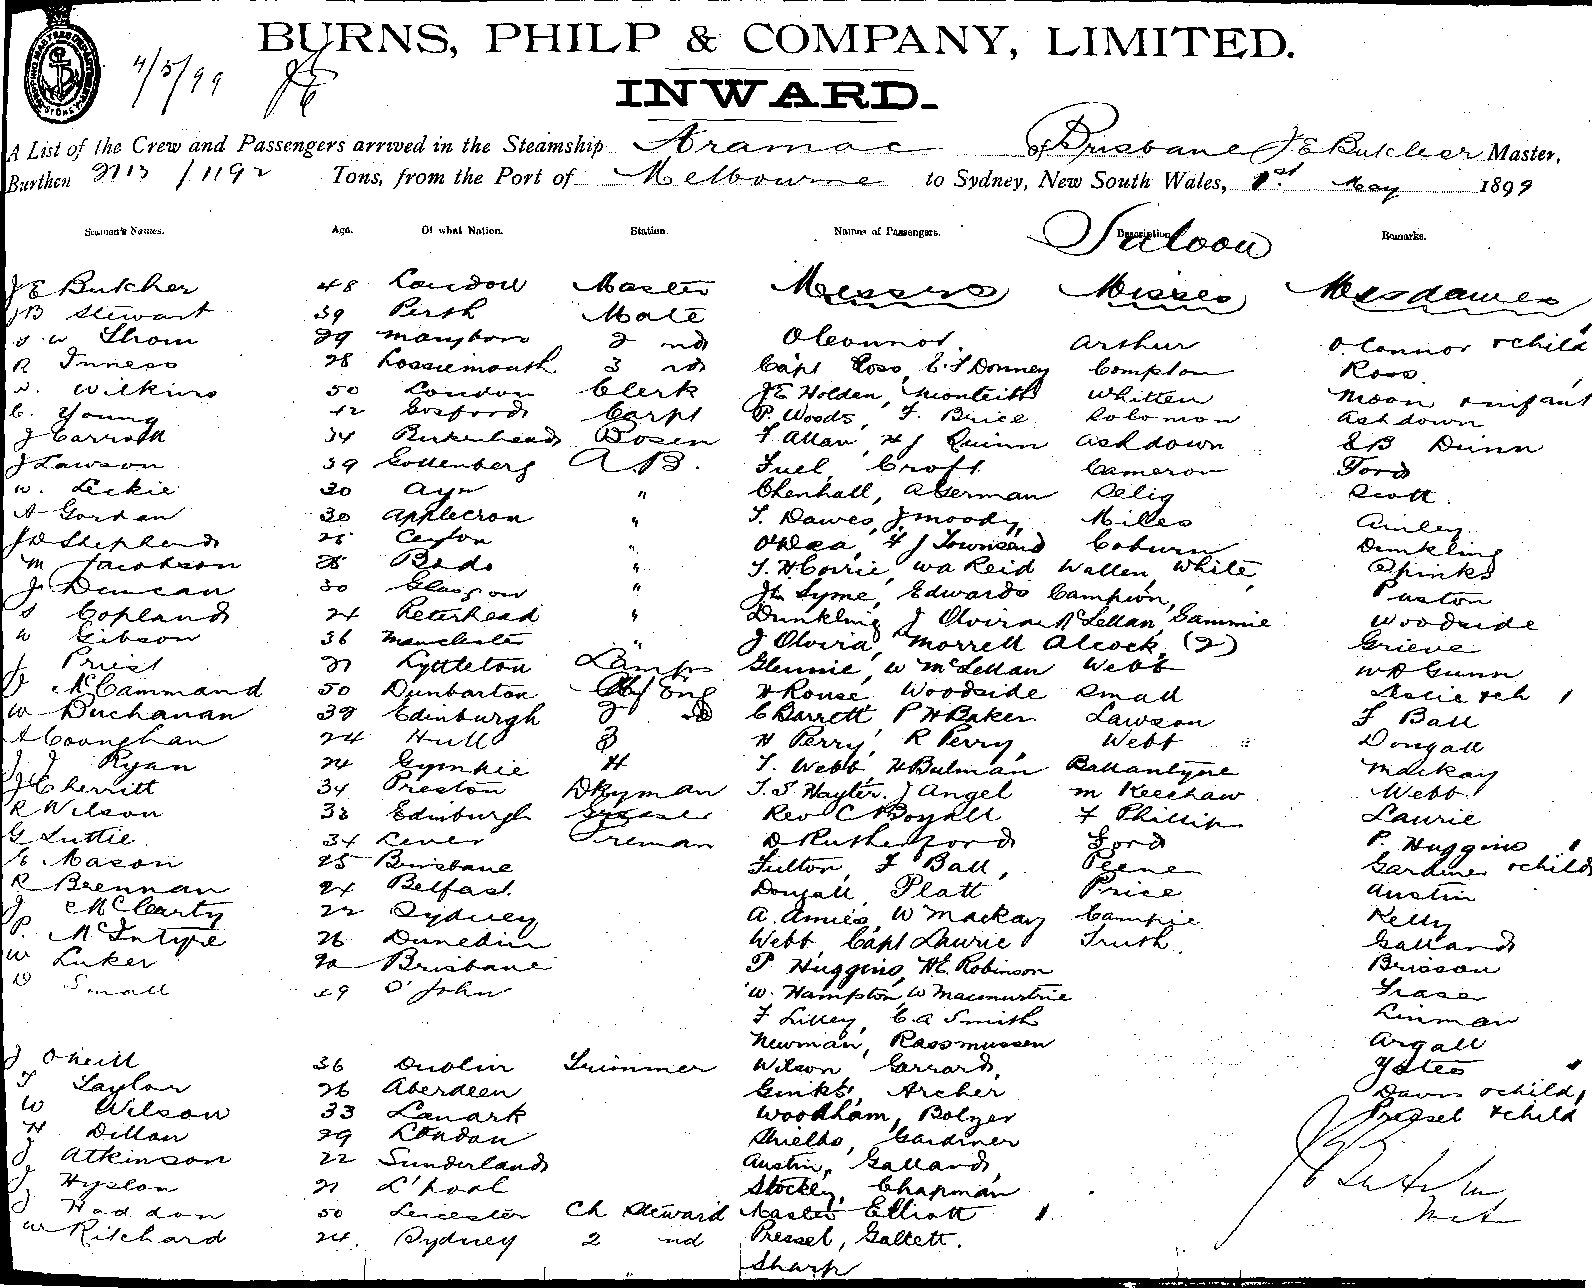 BURNS, PHILP & COMPANY, LIMITED.
4/5/99
INWARD.
A List of the Crew and Passengers arrived in the Steamship Aramac of Brisbane J E Butcher Master,
Burthen 2113 / 1192 Tons, from the Port of Melbourne to Sydney, New South Wales, 1st May 1899
Seaman's Names. Age. Of what Nation. Station. Names of Passengers. Description. Remarks.
Saloon
J E Butcher 48 London Master Messrs Misses Mesdames
J B Stewart 39 Perth Mate
W Strom 29 Maryboro 2 nd O'Connor. Arthur O'Connor & child
R Inness 28 Lossiemouth 3 rd Capt Ross, Compton Ross
Wilkins 50 London Clerk J E Holden, Monteith Whitten Moon & infant
C. Young 42 Gosford Carpt P. Woods, F. Brice Solomon Ashdown
J Carroll 34 Birkenhead Bosen F Allan, H J Quinn Ashdown E B Dunn
J Lawson 39 Gottenberg A B. Fuel, Croft Cameron Ford
W. Leckie 30 Ayr " Chenhall, Selig Scott.
A Gordan 30 Applecron " T. Dawes, J Moody, Miles Ainley
J D Shepherd 25 Ceylon " O'Dea, F J Townsend Coburn Dunkling
M Jacobson 28 " T. H Corrie, W A Reid Wallen, White, Spinks
J Duncan 30 Glasgow " Syme, Edwards Campion, Paston
S Copland 24 Peterhead " Dunkling McLellan, Gammie Woodside
W Gibson 36 Manchester " Morrell Alcock, (2) Grieve
J Priest 21 Lyttleton Lamps Glennie, W McLellan Webb W A Gunn
McCammand 50 Dunbarton Chf Eng H Rouse Woodside Small
W Buchanan 39 Edinburgh 2 nd C Barrett P H Baker Lawson F Ball
A Coonghan 24 Hull 3 H Perry, R Perry, Webb Dougall
J J Ryan 24 Gympie 4 T. Webb, H Bulman Ballantyne Mackay
J Cherritt 34 Preston DKyman T. S Hayter. J Angel M Keechaw Webb
R Wilson 33 Edinburgh Greaser Rev C Boyall F Phillips Laurie
G Luttie 34 Leven Fireman D Rutherford Ford P. Huggins
E Mason 25 Brisbane Fulton, F Ball, Peene Gardiner & child
R Brennan 24 Belfast. Dougall, Platt Price Austin
J McClearty 22 Sydney A. Amies, W Mackay Campie Kelly
P. McIntyre 26 Dunedin Webb, Capt Laurie Truth. Galland
W Luker 20 Brisbane P Huggins, H E. Robinson Brisson
Small 49 St John W. Hampton, W Fraser
F Lilley, C. A Smith Linman
Newman, Rassmussen Argall
J O'Neill 36 Dublin Trimmer Wilson Gerrard, Yates
T Taylor 26 Aberdeen Archer Davis & child,
W Wilson 33 Lanark Woodham, Bolger Pressel & child
H Dillon 29 London Shields, Gardiner
J Atkinson 22 Sunderland Austin, Galland,
J Hyslon 21 L'pool Stockley, Chapman
J Haddon 50 Leicester Ch Steward Master Elliott 1
W Ritchard 24. Sydney 2 nd Pressel, Gallett.
Sharp